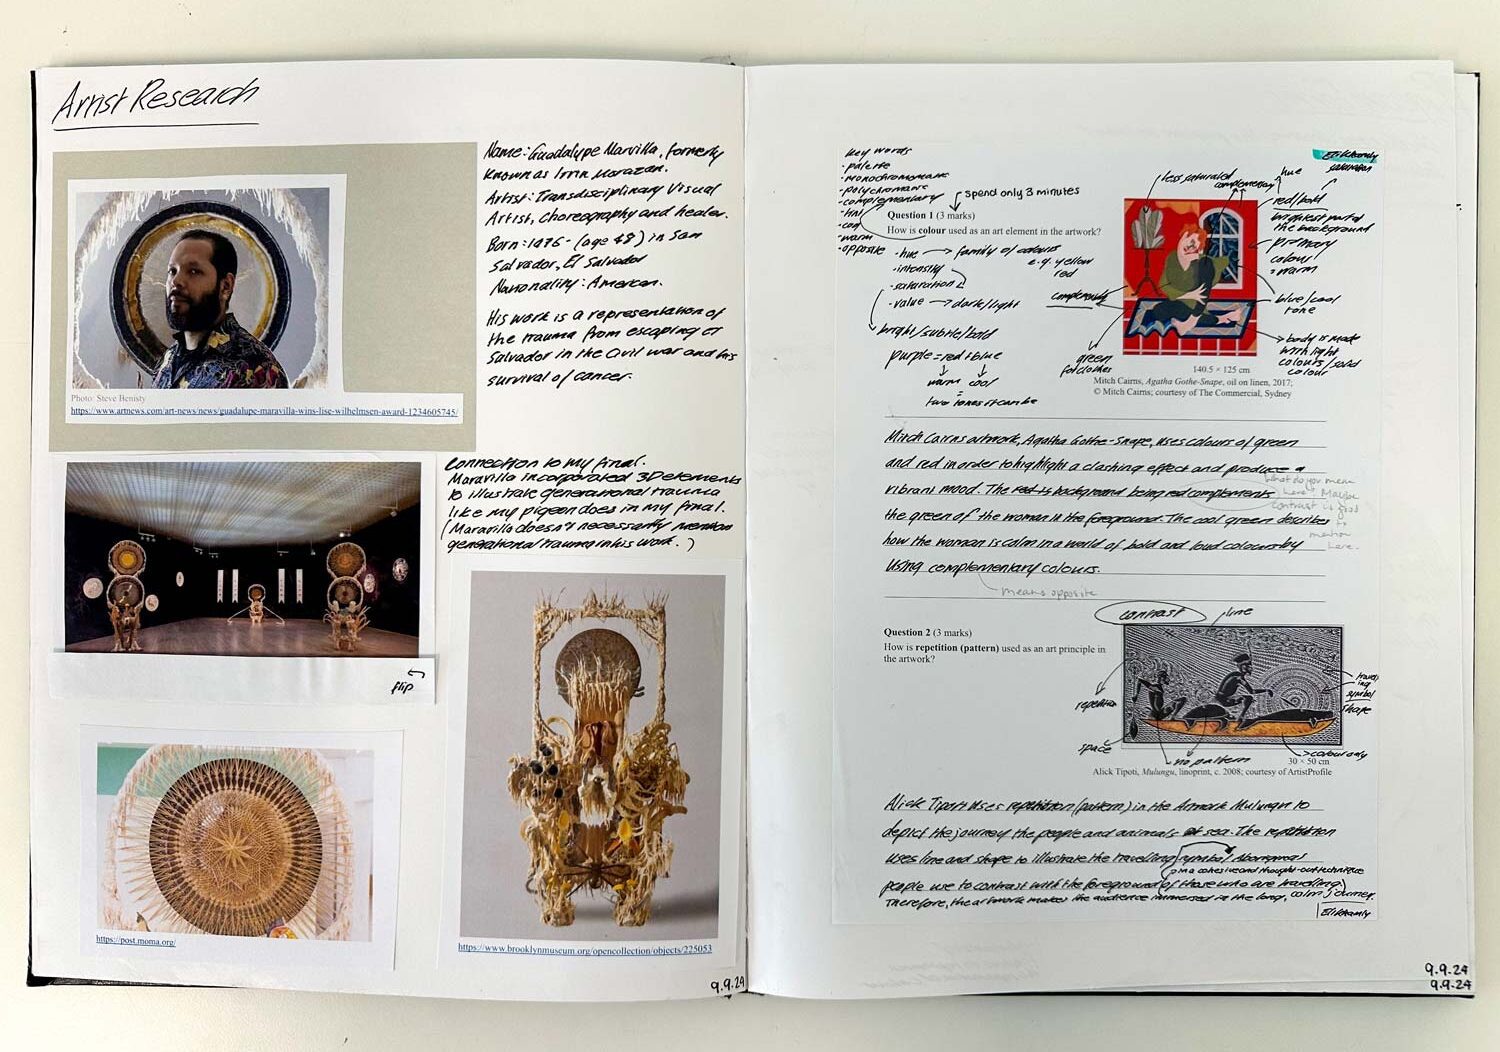 Artist Research
Name: Guadalupe Marvilla, formerly
known as Irvin Morazan.
Artist: Transdisciplinary Visual
Artist, Choreography and healer.
Born: 1976- (age 48) in San
Salvador, El Salvador
Nationality: American.
His work is a representation of
the trauma from escaping El
Salvador in the Civil war and his
survival of cancer.
Photo: Steve Benisty
https://www.artnews.com/art-news/news/guadalupe-maravilla-wins-lise-wilhelmsen-award-1234605745/
Connection to my final.
Maravilla incorporated 3D elements
to illustrate generational trauma
like my pigeon does in my final.
(Maravilla doesn't necessarily mention
generational trauma in his work.)
flip
https://post.moma.org/
https://www.brooklynmuseum.org/opencollection/objects/225053
9.9.24
Key words
· palette
· monochromomane
· polychromane
· complementary
· warm
· opposite
spend only 3 minutes
Question 1 (3 marks)
How is colour used as an art element in the artwork?
· hue → family of colours
e.g. yellow
red
· intensity
· saturation
· value → dark/light
bright/subtle/bold
purple = red + blue
warm cool
two tones it can be
less saturated
complementary
hue
saturation
red/bold
brightest part of
the background
primary
colour
: warm
blue/cool
tone
body is made
with light
colours/solid
colour
green
for clothes
140.5 × 125 cm
Mitch Cairns, Agatha Gothe-Snape, oil on linen, 2017;
© Mitch Cairns; courtesy of The Commercial, Sydney
Mitch Cairns artwork, Agatha Gothe-Snape, uses colours of green
and red in order to highlight a clashing effect and produce a
vibrant mood. The red is background being red complements
what do you mean
here? Maybe
contrast is good
to
mention
here.
the green of the woman in the foreground. The cool green describes
how the woman is calm in a world of bold and loud colours by
using complementary colours.
means opposite
Question 2 (3 marks)
How is repetition (pattern) used as an art principle in
the artwork?
contrast
line
repetition
space
no pattern
travell
ing
symbol
shape
colour only
30 × 50 cm
Alick Tipoti, Mulungu, linoprint, c. 2008; courtesy of ArtistProfile
Alick Tipoti uses repetition (pattern) in the Artwork Mulungu to
depict the journey the people and animals at sea. The repetition
uses line and shape to illustrate the travelling symbol Aboriginal
in a cohesive and thought-out technique
people use to contrast with the foreground of those who are travelling.
Therefore, the artwork makes the audience immersed in the long, calm journey.
9.9.24
9.9.24